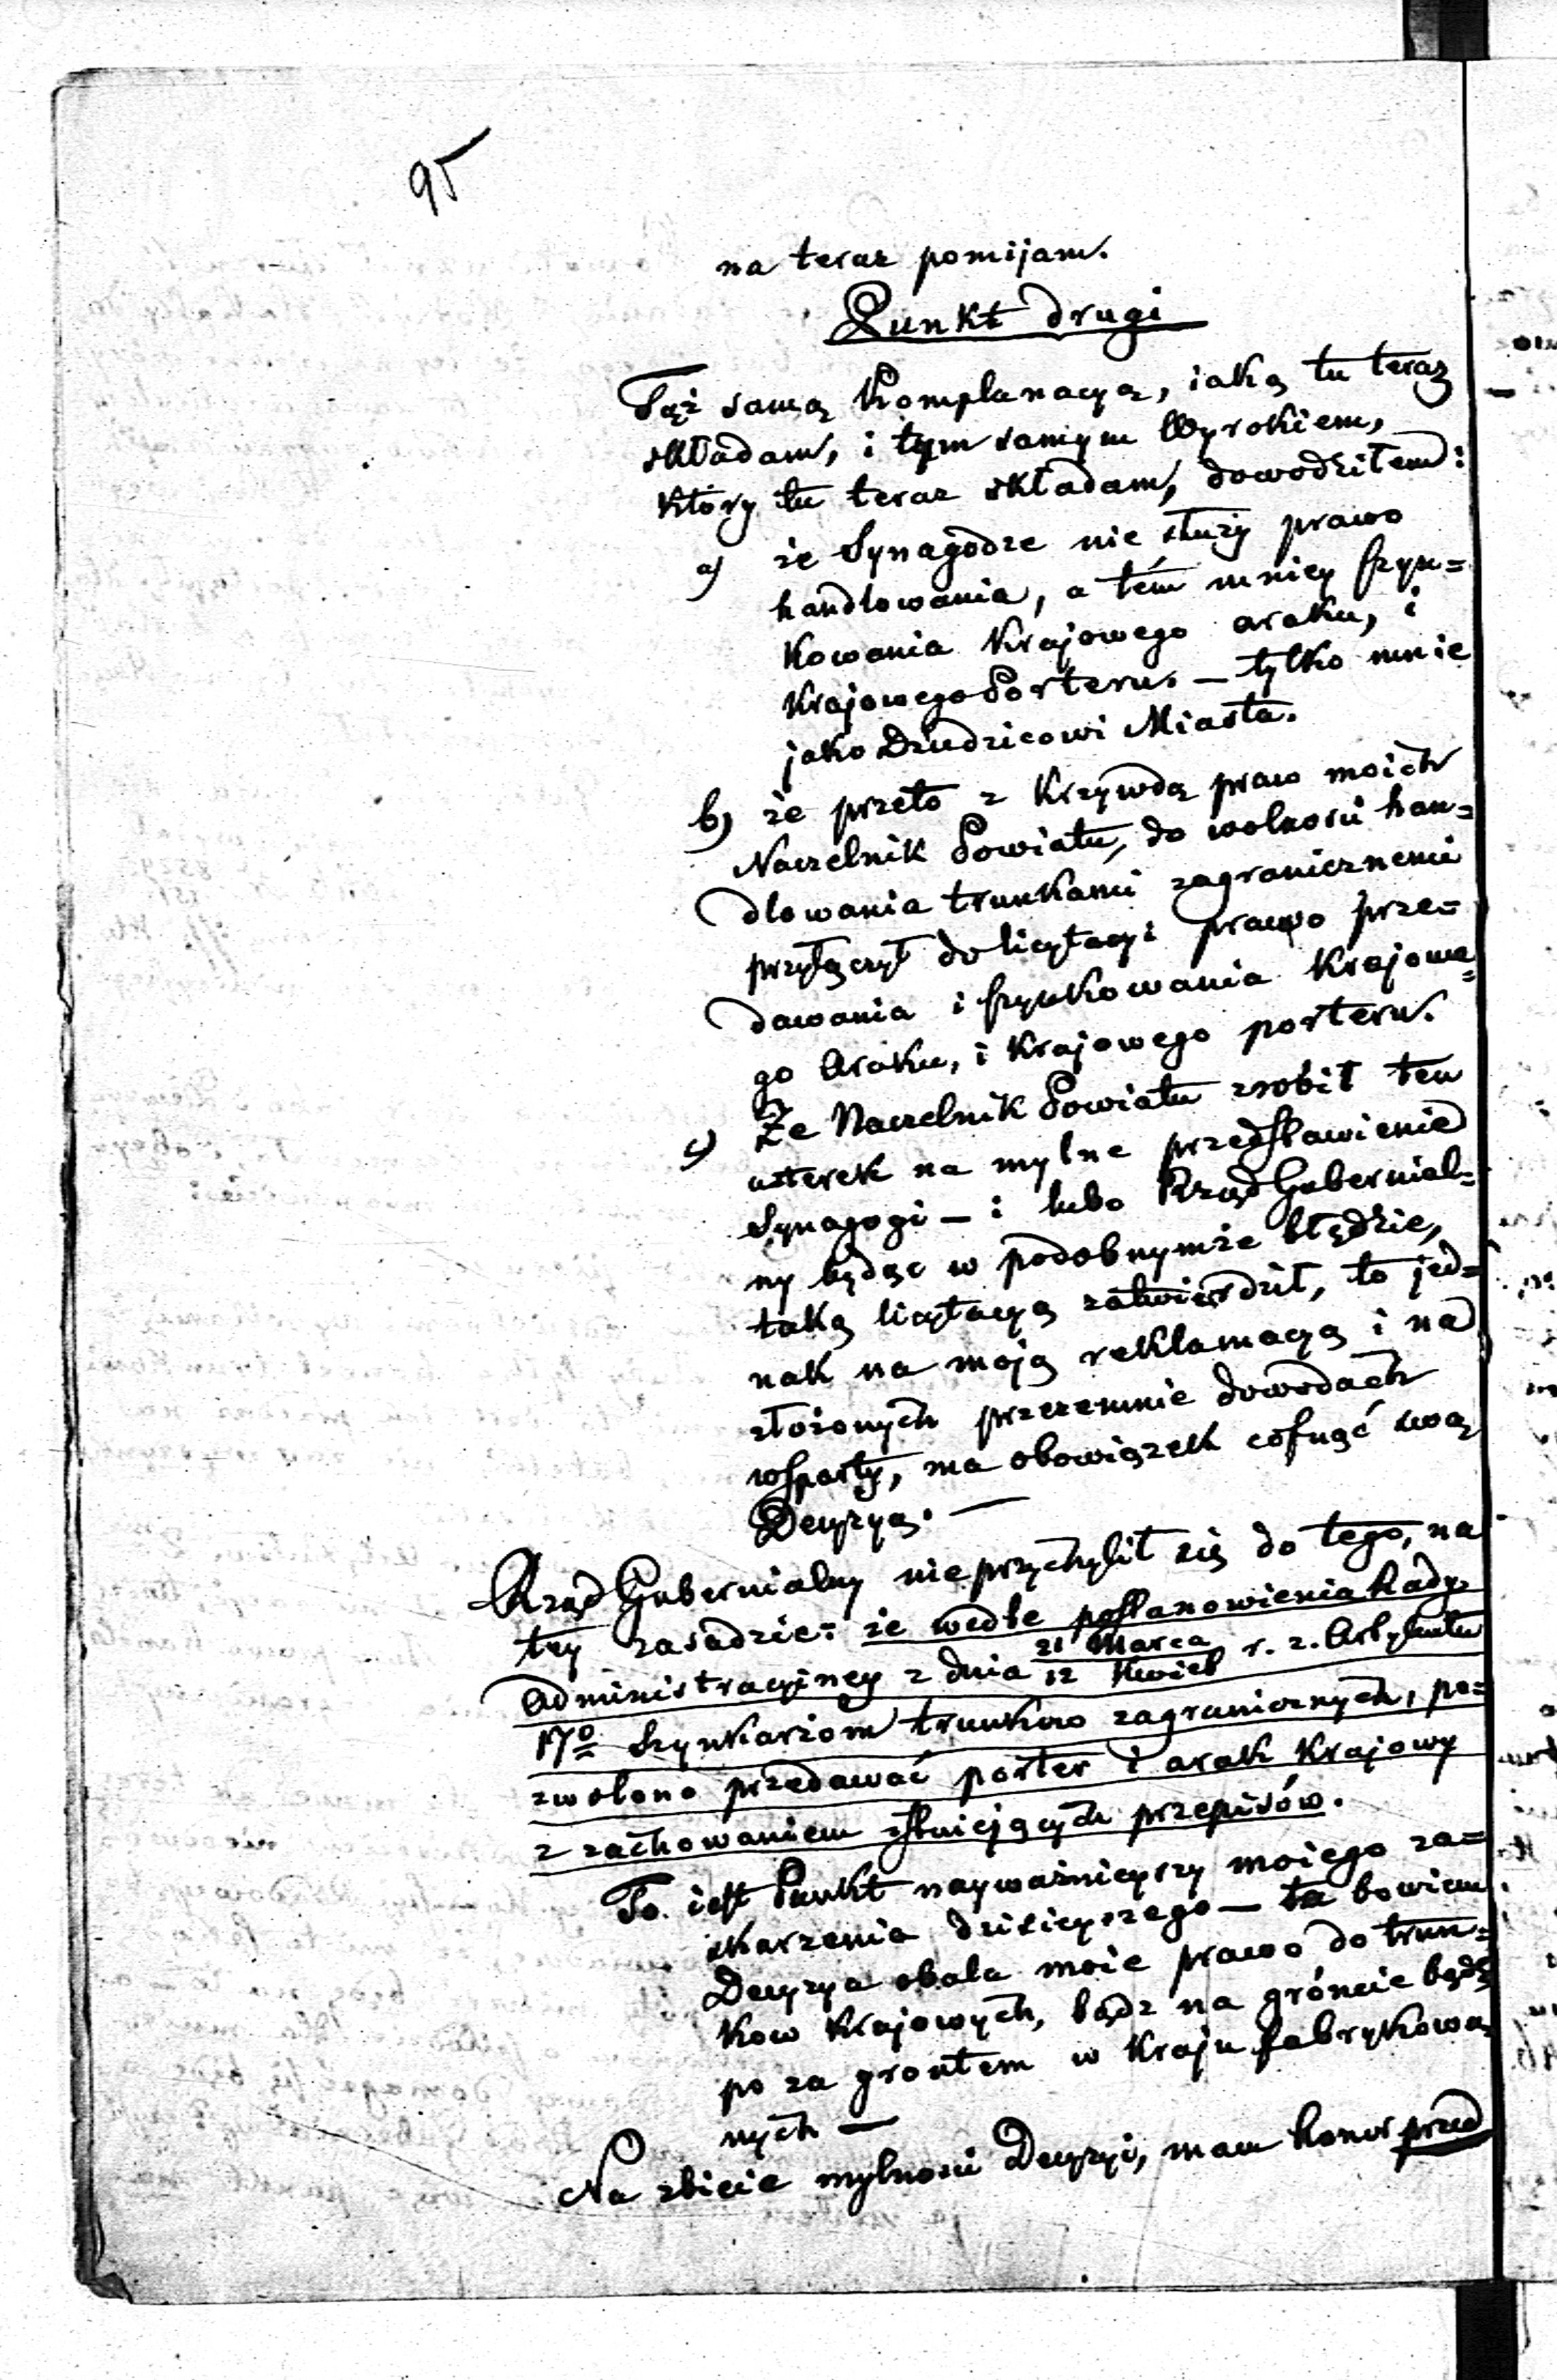 95
na teraz pomijam.
Punkt drugi
Tęż samą Komplanacyą, iaką tu teraz
składam, i tym samym Wyrokiem,
który tu teraz składam, dowodziłem:
a) że Synagodze nie służy prawo
handlowania, a tém mniey szyn=
kowania Krajowego araku, i
Krajowego Porteru. — tylko mnie
jako Dziedzicowi Miasta.
b) że przeto z Krzywdą praw moich
Naczelnik Powiatu, do wolności han=
dlowania trunkami zagranicznemi
przyłączył do licytacyi prawo prze=
dawania i szynkowania Krajowe=
go Araku, i Krajowego porteru.
c) Że Naczelnik Powiatu zrobił ten
uzterek na mylne przedstawienie
Synagogi — i lubo Rząd Gubernial=
ny będąc w podobnymże błędzie,
taką licytacyą zatwierdził, to jed=
nak na moją reklamacyą i na
złożonych przezemnie dowodach
wsparty, ma obowiązek cofnąć swą
Decyzyą. —
Rząd Gubernialny nieprzychylił się do tego, na
tey zasadzie: że wedle postanowienia Rady
Administracyjney z dnia 21 Marca / 12 Kwiet r. z. Artykułu
17º Szynkarzom trunkow zagranicznych, po=
zwolono przedawać porter i arak Krajowy
z zachowaniem istniejących przepisów.
To iest Punkt nayważnieyszy moiego za=
skarzenia dzisieyszego — ta bowiem
Decyzya obala moie prawo do trun=
kow Krajowych, bądz na gróncie bądź
po za grontem w Kraju fabrykowa
nych —
Na zbicie mylności Decyzyi, mam honor przed